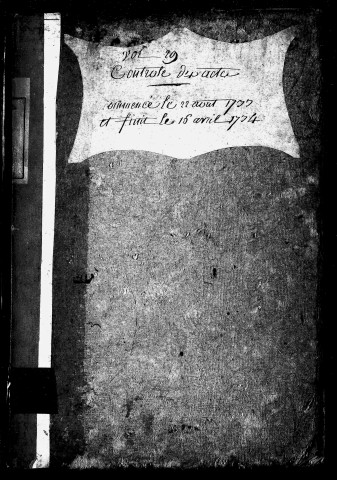 vol 29
Controle des actes
commencé le 22 aout 1777
et finit le 16 avril 1774